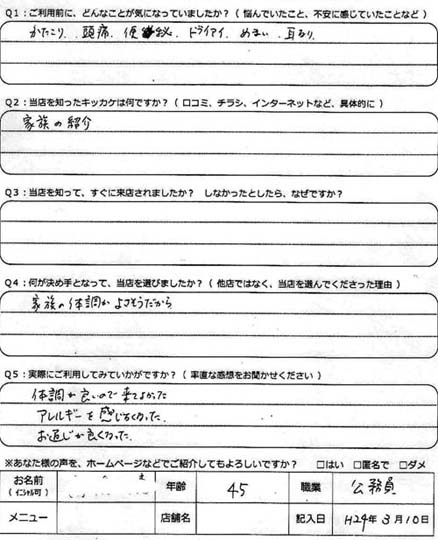 Q1：ご利用前に、どんなことが気になっていましたか？（ 悩んでいたこと、不安に感じていたことなど ）
かたこり、頭痛、便秘、ドライアイ、めまい、耳なり、
Q2：当店を知ったキッカケは何ですか？（ 口コミ、チラシ、インターネットなど、具体的に ）
家族の紹介
Q3：当店を知って、すぐに来店されましたか？　しなかったとしたら、なぜですか？
Q4：何が決め手となって、当店を選びましたか？（ 他店ではなく、当店を選んでくださった理由 ）
家族の体調がよさそうだから
Q5：実際にご利用してみていかがですか？（ 率直な感想をお聞かせください ）
体調が良いので来てよかった
アレルギーを感じなくなった。
お通じが良くなった.
※あなた様の声を、ホームページなどでご紹介してもよろしいですか？　□はい　□匿名で　□ダメ
お名前 年齢 45 職業 公務員
(ｲﾆｼｬﾙ可)
メニュー 店舗名 記入日 H24年 3月10日